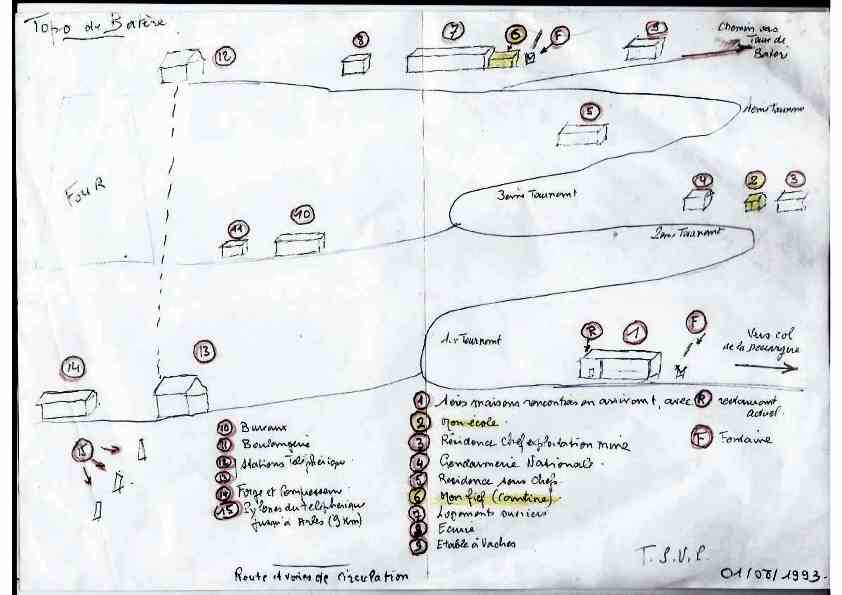 Topo de Batère
12
8
7
6
F
9
Chemin vers
Tour de
Batère
4ème Tournant
5
FOUR
3ème Tournant
4
2
3
11
10
2ème Tournant
14
13
1er Tournant
R
1
F
Vers col
de la
15
1 1ères maisons rencontrées en arrivant, avec R restaurant
actuel.
2 Mon école
3 Résidence Chef exploitation mine
F Fontaine
4 Gendarmerie Nationale
5 Résidence sous Chefs
6 Mon fief (Cantine)
7 Logements ouvriers
8 Ecurie
9 Etable à Vaches
10 Bureaux
11 Boulangerie
12 Stations Téléphérique
13
14 Forge et Compresseur
15 Pylones du téléphérique
jusqu'à Arles (9 km)
Route et voies de circulation
T.S.V.P.
01/06/1993